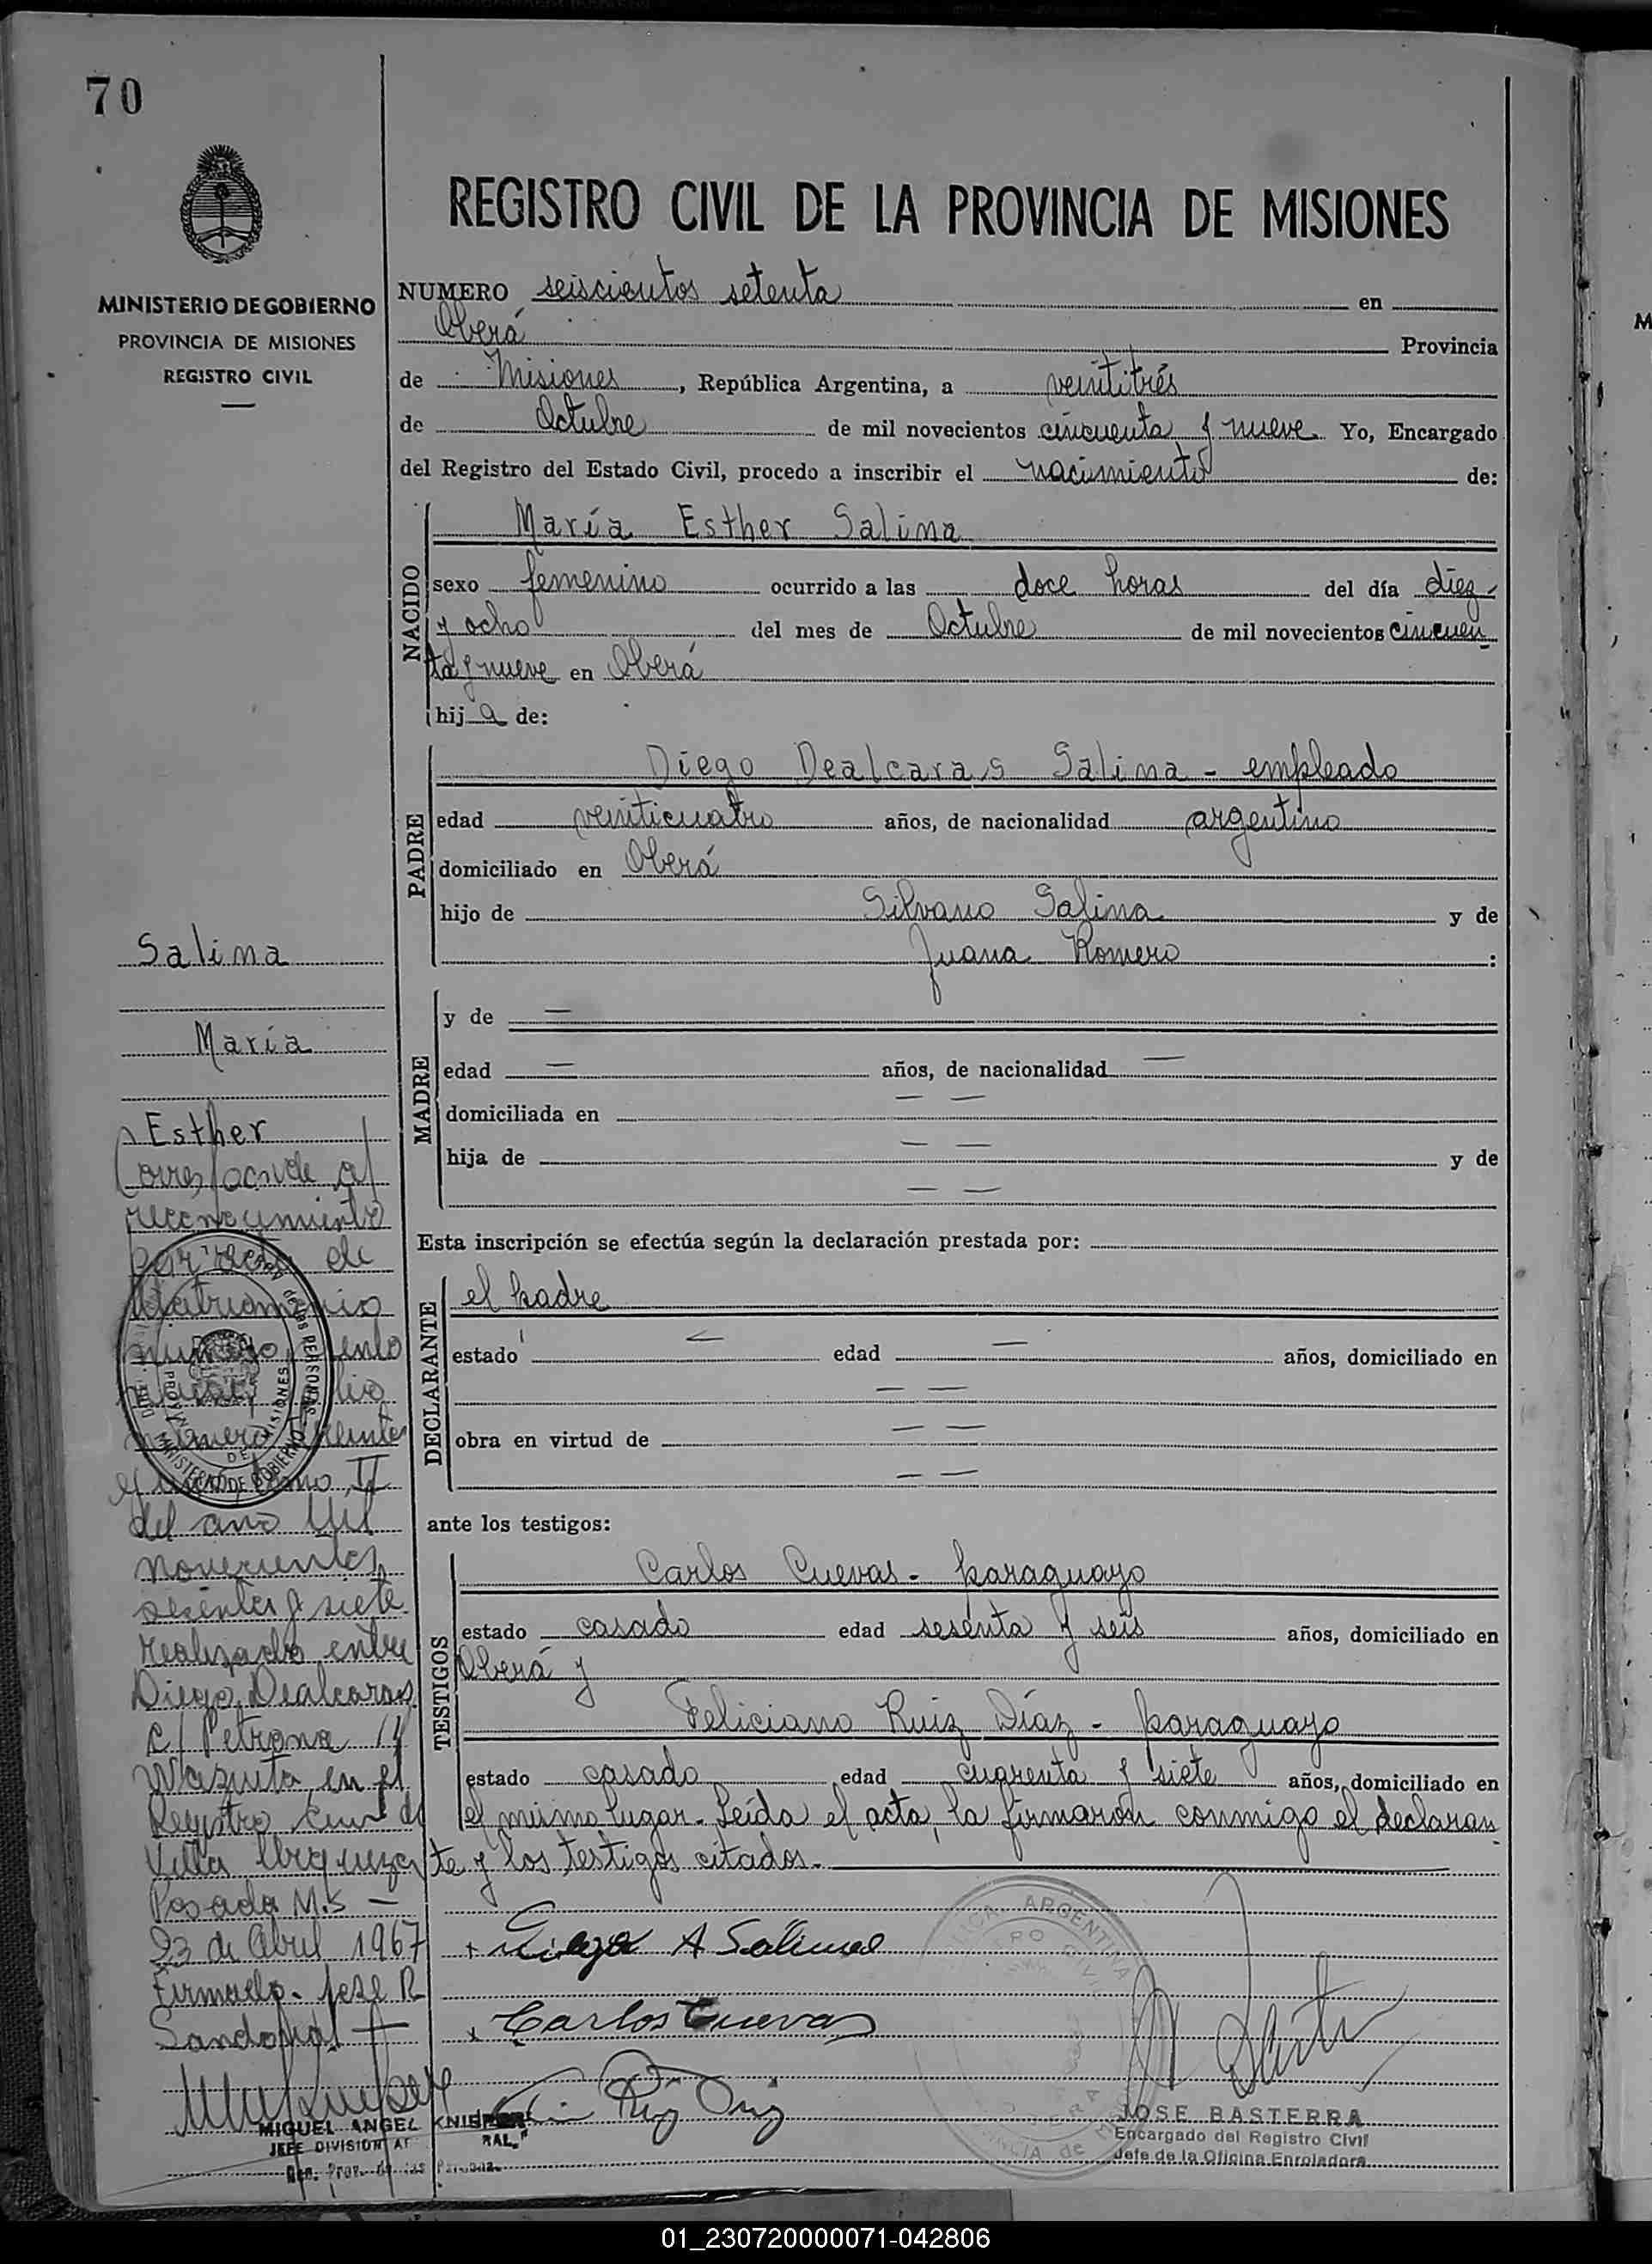 70
MINISTERIO DE GOBIERNO
PROVINCIA DE MISIONES
REGISTRO CIVIL
REGISTRO CIVIL DE LA PROVINCIA DE MISIONES
NUMERO seiscientos setenta en
Oberá Provincia
de Misiones, República Argentina, a veintitrés
de Octubre de mil novecientos cincuenta y nueve. Yo, Encargado
del Registro del Estado Civil, procedo a inscribir el nacimiento de:
NACIDO
María Esther Salina
sexo femenino ocurrido a las doce horas del día diez
y ocho del mes de Octubre de mil novecientos cincuen
ta y nueve en Oberá
hija de:
PADRE
Diego Dealcaras Salina - empleado
edad veinticuatro años, de nacionalidad argentino
domiciliado en Oberá
hijo de Silvano Salina y de
Juana Romero :
MADRE
y de —
edad — años, de nacionalidad —
domiciliada en — —
hija de — — y de
— —
Esta inscripción se efectúa según la declaración prestada por:
DECLARANTE
el padre
estado — edad — años, domiciliado en
— —
obra en virtud de — —
— —
ante los testigos:
TESTIGOS
Carlos Cuevas - paraguayo
estado casado edad sesenta y seis años, domiciliado en
Oberá y
Feliciano Ruiz Díaz - paraguayo
estado casado edad cuarenta y siete años, domiciliado en
el mismo lugar. Leída el acta, la firmaron conmigo el declaran
te y los testigos citados.
Salina
María
Esther
Corresponde al
reconocimiento
por acta de
Matrimonio
número
número
tomo II
del año Mil
novecientos
sesenta y siete
realizado entre
Diego Dealcaras
c/ Petrona
en el
Registro Civil de
Villa Urquiza
Posada M.s —
23 de Abril 1967
Firmado. José R
Sandoval
A Salinas
Carlos Cuevas
MIGUEL ANGEL
JEFE DIVISION
JOSE BASTERRA
Encargado del Registro Civil
Jefe de la Oficina Enroladora
01_230720000071-042806